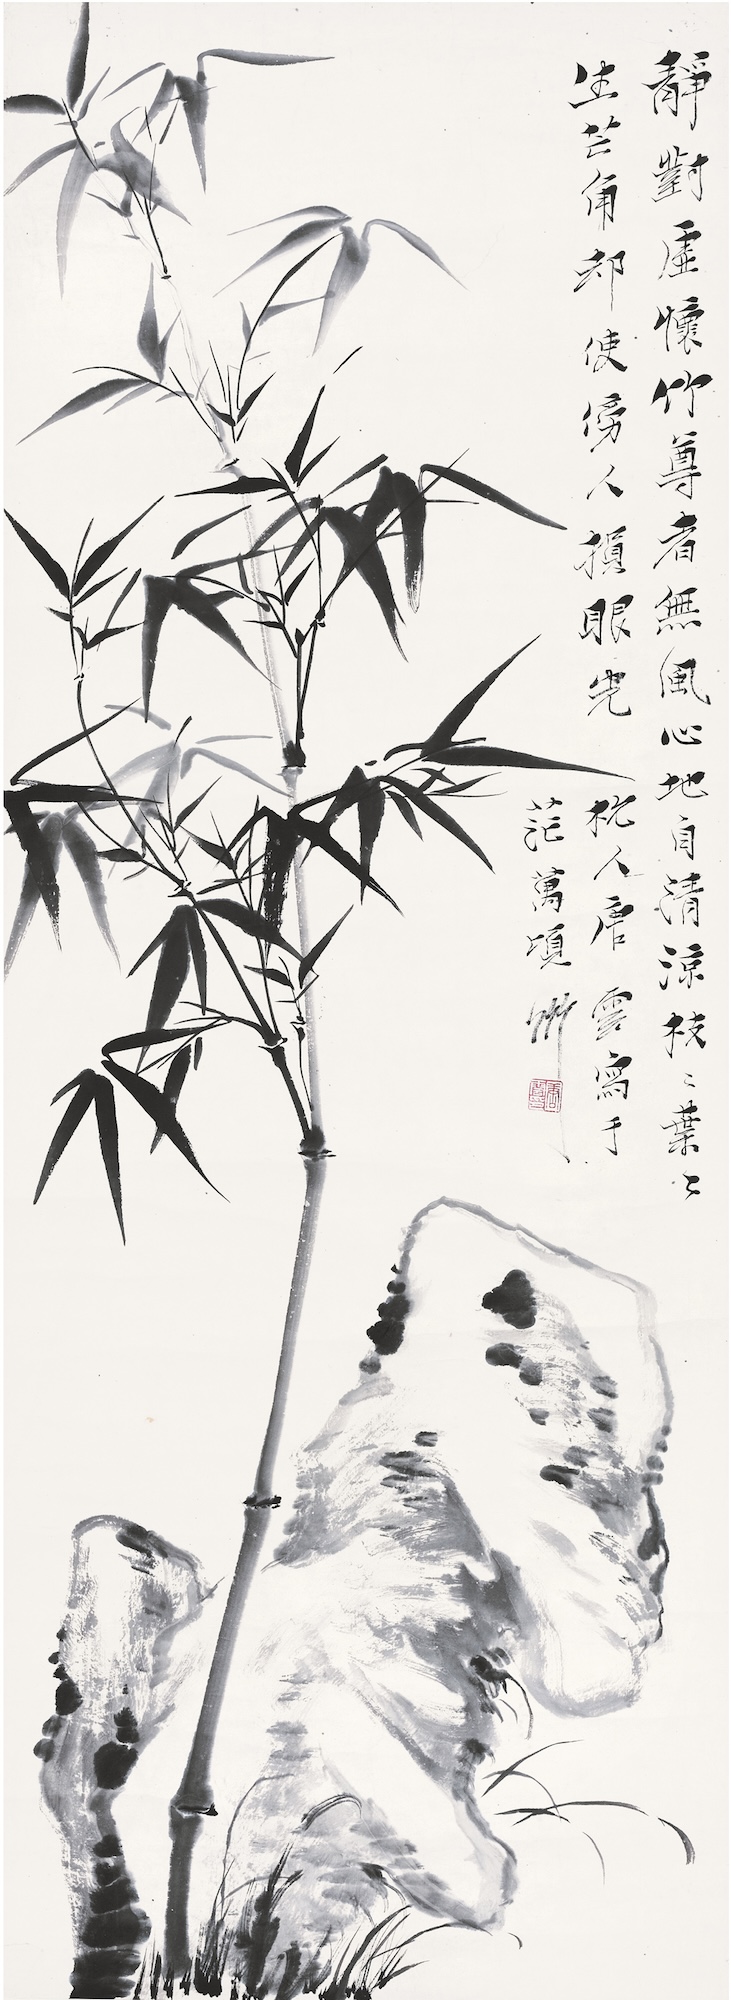 靜對虛懷竹尊者無風心地自清涼枝〻葉〻
生芒角却使傍人損眼光
杭人唐雲寫于
茫萬頃